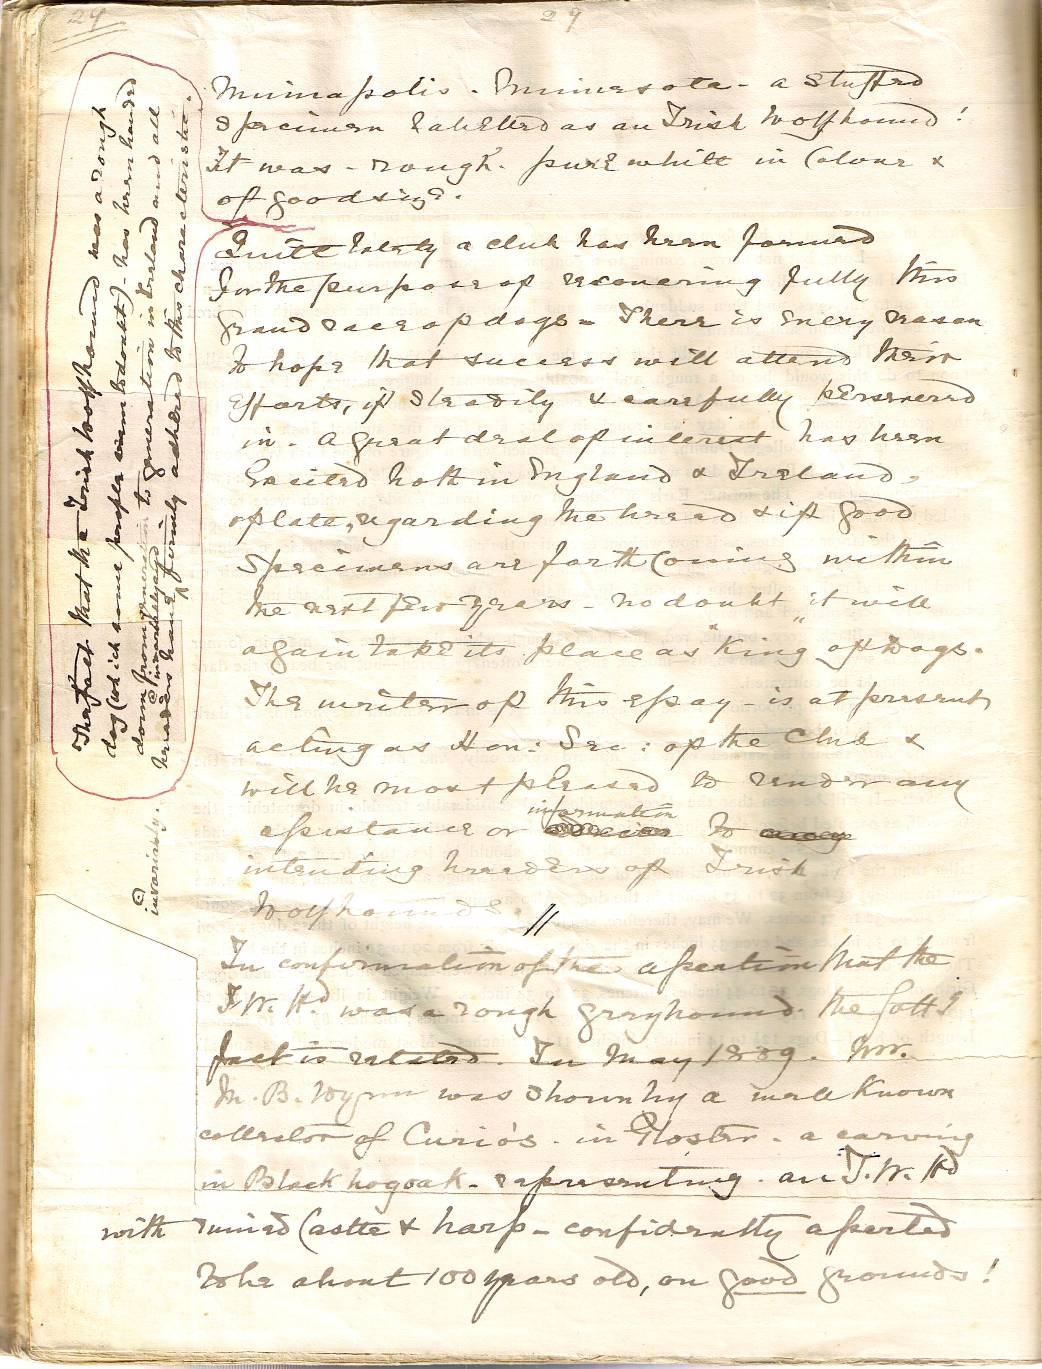 29
29
Minniapolis - Minnesota - a stuffed
specimen labelled as an Irish Wolfhound!
It was - rough. pure white in Colour &
of good size.
Quite lately a club has been formed
for the purpose of recovering fully this
grand race of dogs - There is every reason
to hope that success will attend their
efforts, if steadily & carefully persevered
in - A great deal of interest has been
Excited both in England & Ireland,
of late, regarding the breed & if good
specimens are forthcoming within
the next few years - no doubt it will
again take its place as "King" of Dogs.
The writer of this essay - is at present
acting as Hon: Sec: of the Club &
will be most pleased to render any
information
assistance or to
intending breeders of Irish
Wolfhounds. //
In confirmation of the assertion that the
I.W.Hd. was a rough greyhound. the follg
fact is related. In May 1889. Mr.
M. B. Wynn was shown by a well known
collector of Curio's - in Gloster - a carving
in Black bogoak - representing - an I.W.Hd
with ruined Castle & harp - confidently asserted
to be about 100 years old, on good grounds!
The fact that the Irish wolfhound was a rough
dog (which some people seem to doubt) - has been handed
down from generation to generation in Ireland and all
breeders have firmly adhered to this characteristic.
invariably.